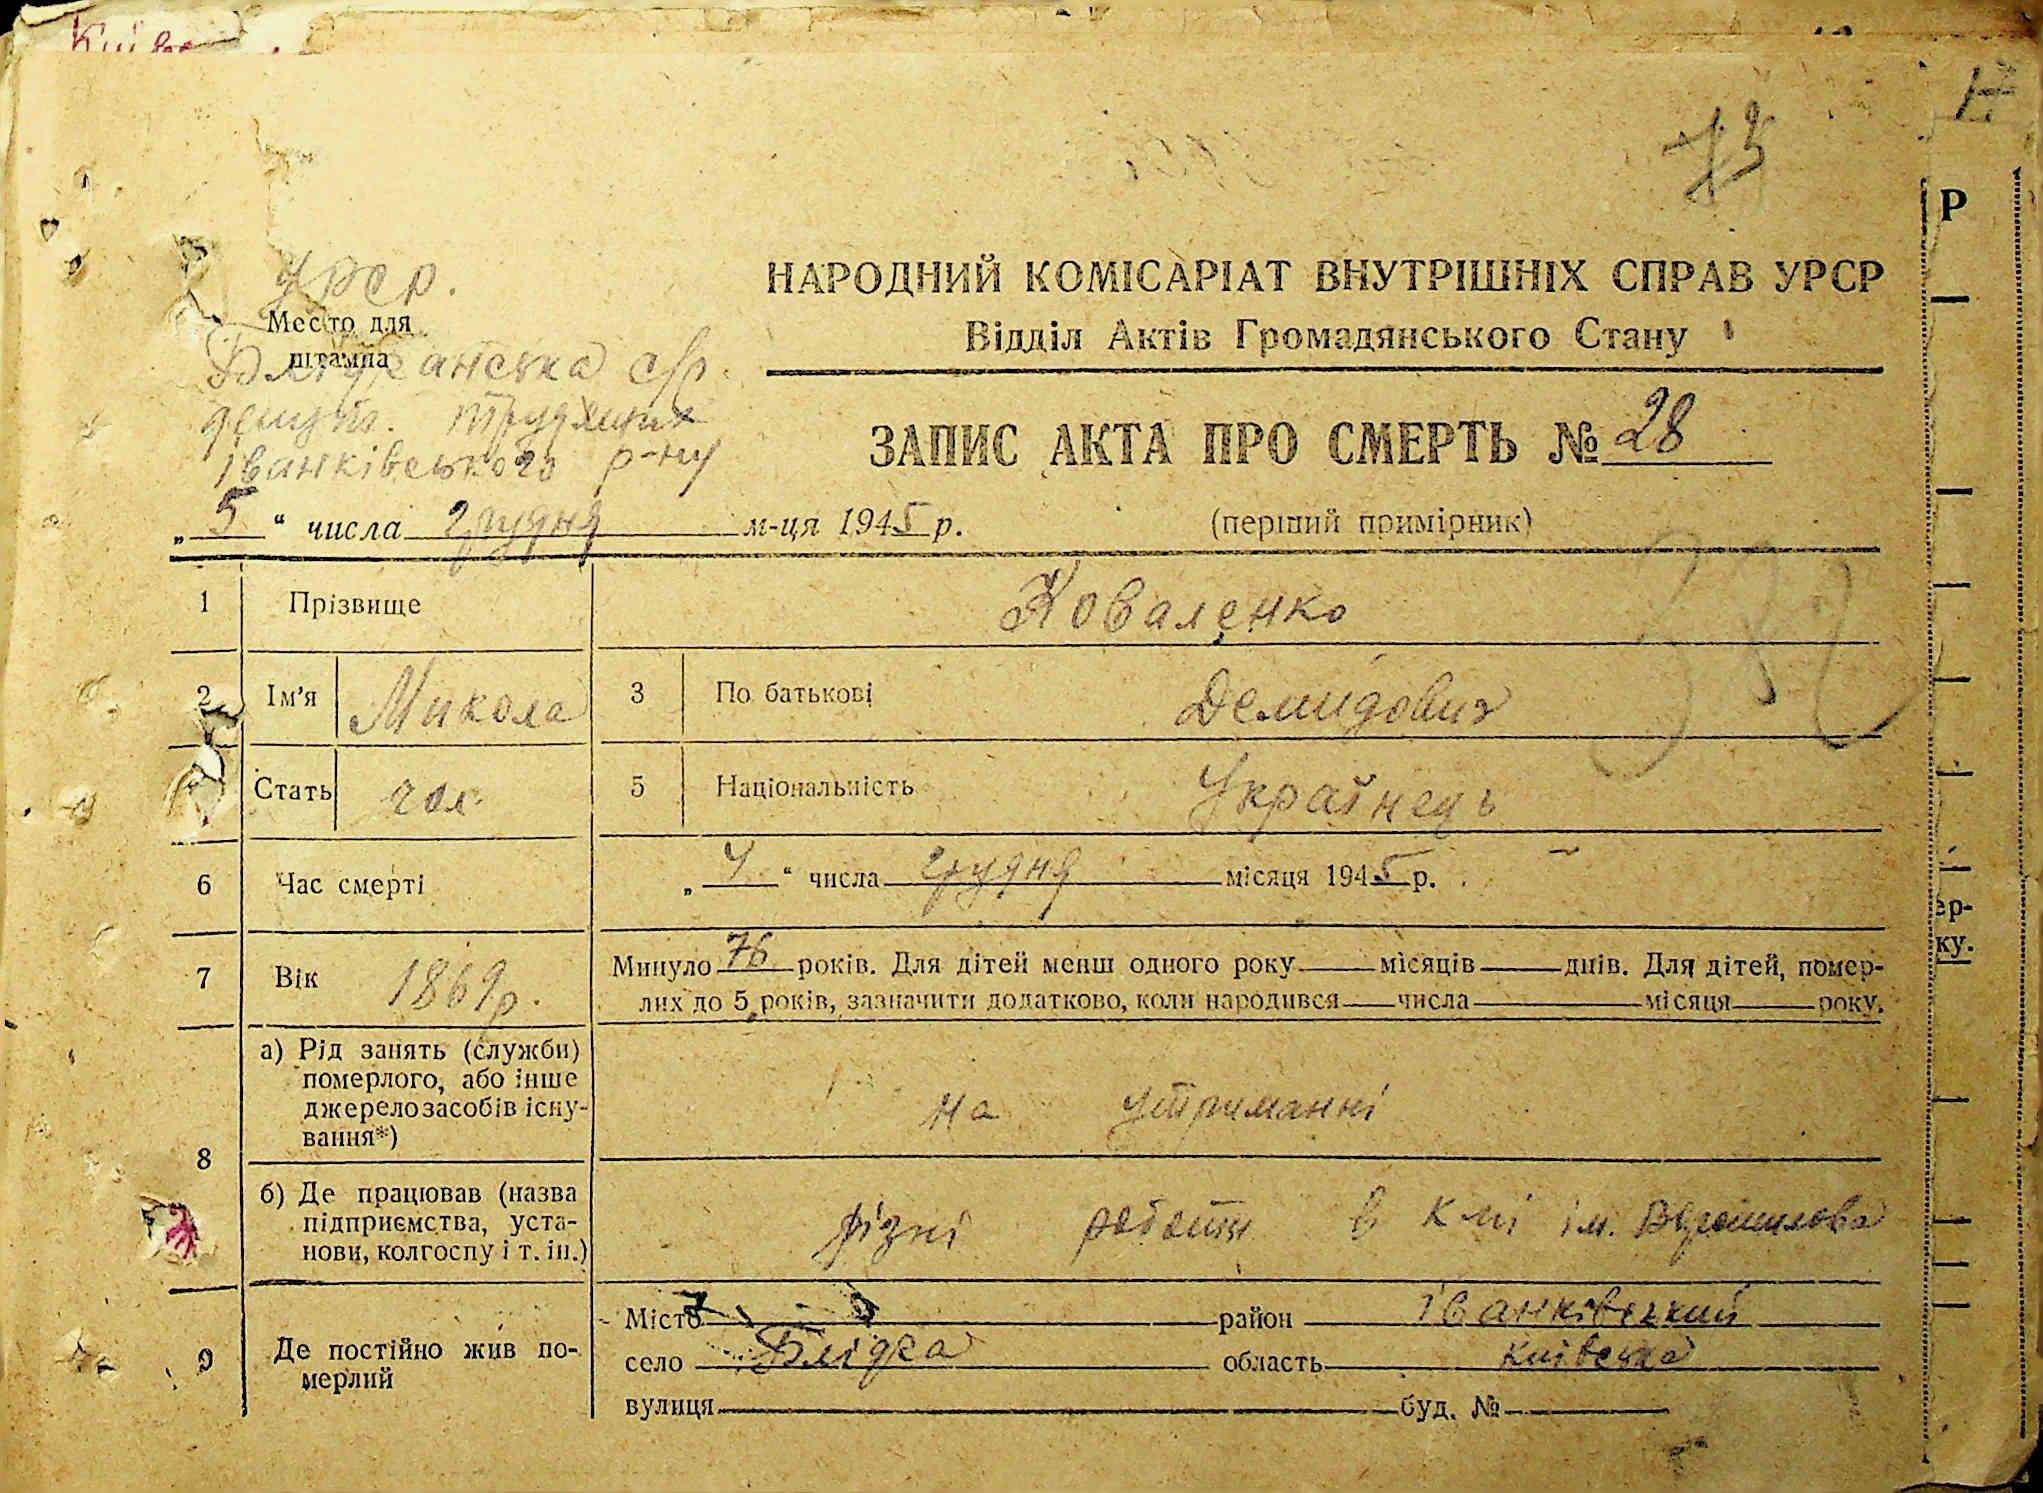 Київс
17
75
Р
УРСР.
Место для
штампа
Блідчанська с/р.
депут. трудящих
Іванківського р-ну
НАРОДНИЙ КОМІСАРІАТ ВНУТРІШНІХ СПРАВ УРСР
Відділ Актів Громадянського Стану
ЗАПИС АКТА ПРО СМЕРТЬ № 28
„ 5 “ числа грудня м-ця 1945 р. (перший примірник)
1 Прізвище Коваленко
2 Ім'я Микола 3 По батькові Демидович
Стать чол. 5 Національність Українець
6 Час смерті „ 4 “ числа грудня місяця 1945 р.
7 Вік 1869 р. Минуло 76 років. Для дітей менш одного року місяців днів. Для дітей, помер-
лих до 5 років, зазначити додатково, коли народився числа місяця року.
ер-
ку.
8 а) Рід занять (служби)
померлого, або інше
джерело засобів існу-
вання*)
на утриманні
б) Де працював (назва
підприємства, уста-
нови, колгоспу і т. ін.)
різні роботи в к-пі ім. Ворошилова
9 Де постійно жив по-
мерлий
Місто район Іванківський
село Блідча область Київська
вулиця буд. №